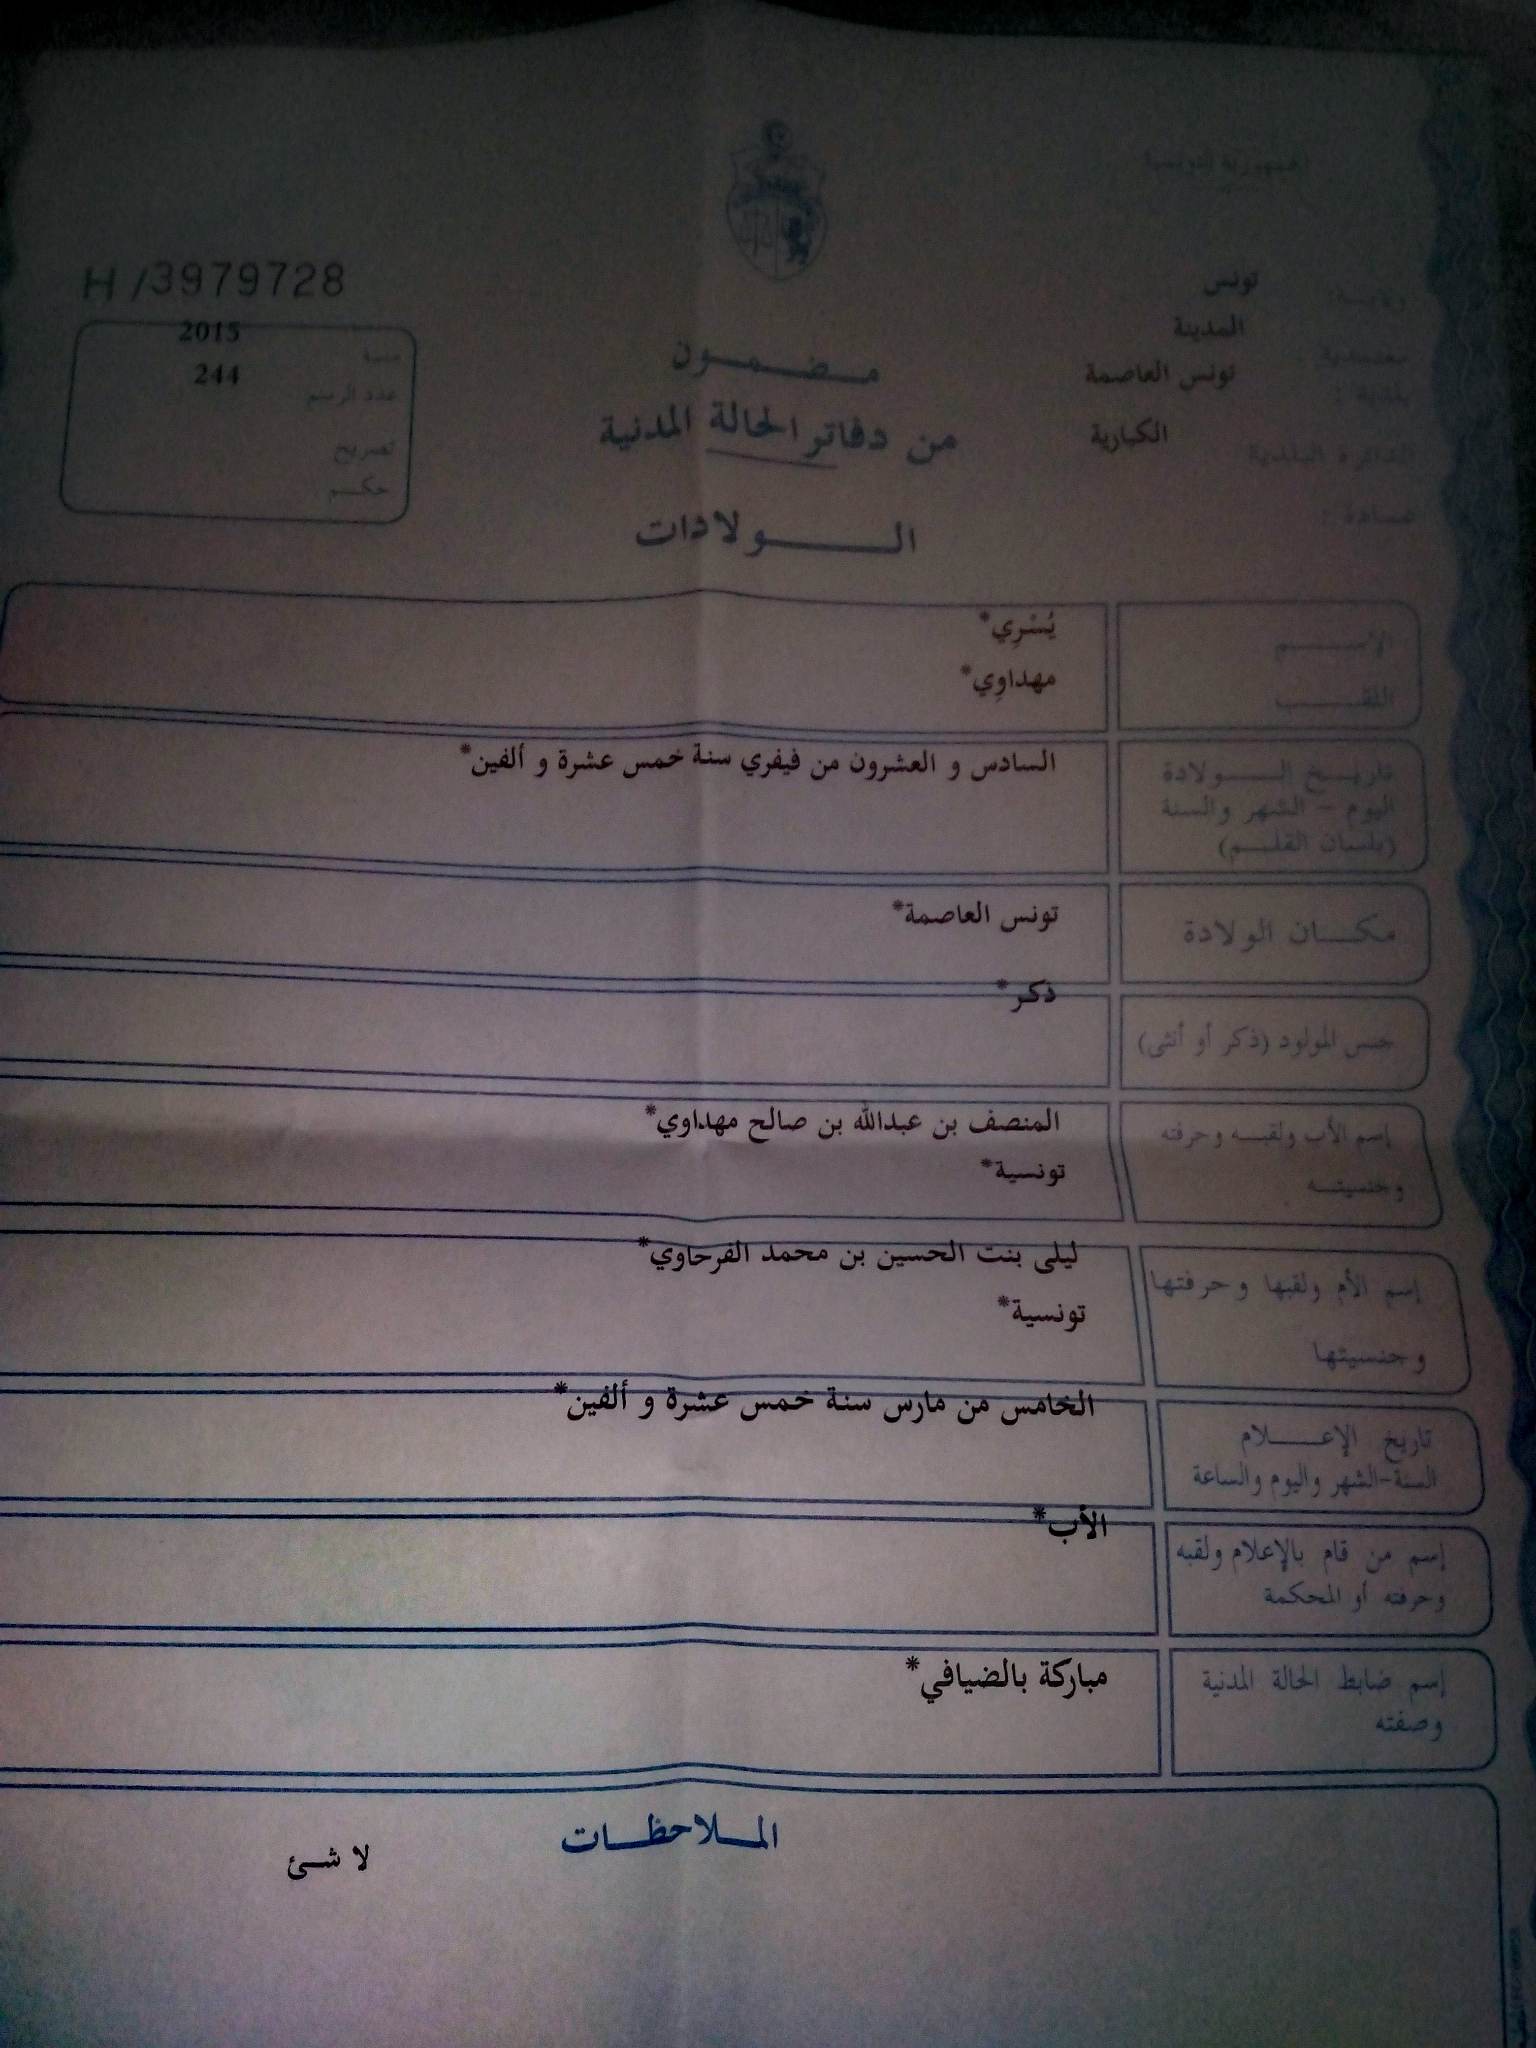 الجمهورية التونسية
H /3979728
سنة 2015
عدد الرسم 244
تصريح
حكم
ولاية: تونس
معتمدية: المدينة
بلدية: تونس العاصمة
الدائرة البلدية الكبارية
عمادة:
مضمون
من دفاتر الحالة المدنية
الولادات
الاسم يُسْرِي*
اللقب مهداوِي*
تاريخ الولادة السادس و العشرون من فيفري سنة خمس عشرة و ألفين*
اليوم - الشهر والسنة
(بلسان القلم)
مكان الولادة تونس العاصمة*
جنس المولود (ذكر أو أنثى) ذكر*
إسم الأب ولقبه وحرفته المنصف بن عبدالله بن صالح مهداوي*
وجنسيته تونسية*
إسم الأم ولقبها وحرفتها ليلى بنت الحسين بن محمد الفرحاوي*
وجنسيتها تونسية*
تاريخ الإعلام الخامس من مارس سنة خمس عشرة و ألفين*
السنة-الشهر واليوم والساعة
إسم من قام بالإعلام ولقبه الأب*
وحرفته أو المحكمة
إسم ضابط الحالة المدنية مباركة بالضيافي*
وصفته
الملاحظات
لا شئ